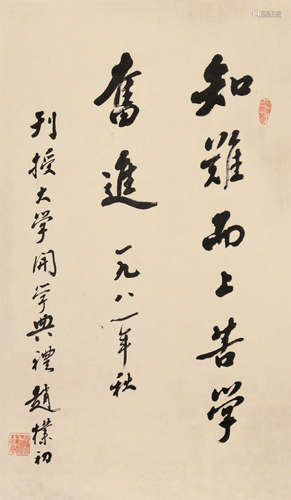 知難而上苦學
奮進 一九八一年秋
刊授大学開学典禮 趙樸初